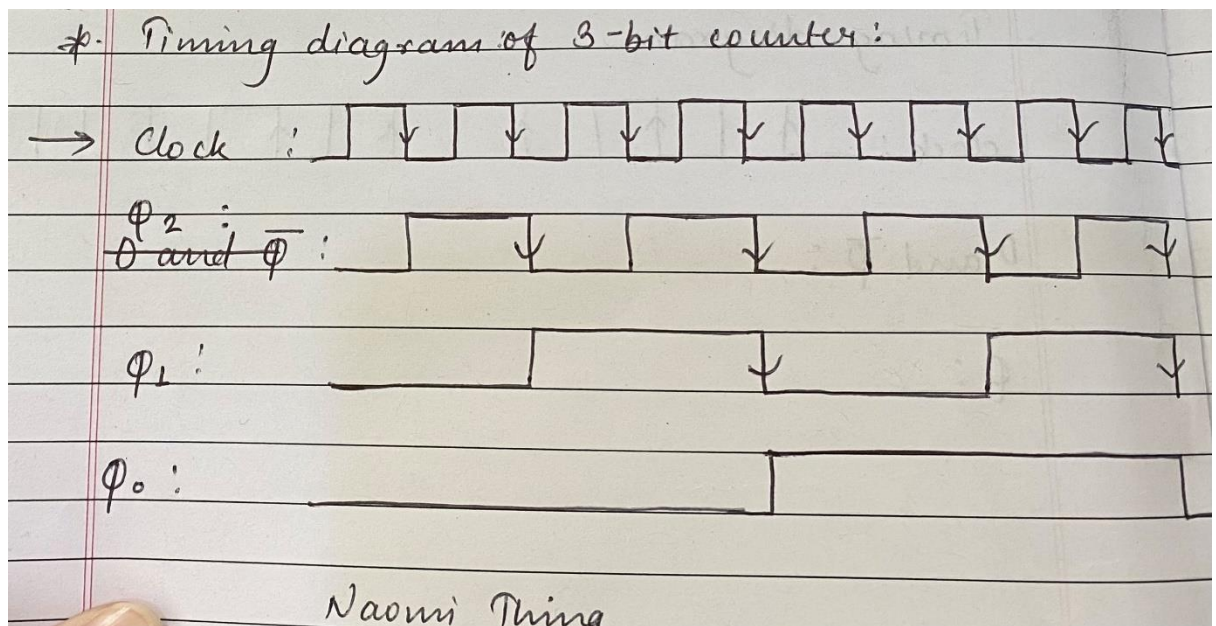 *. Timing diagram of 3-bit counter:
→ Clock :
Q2 :
D and Q̅ :
Q1 :
Q0 :
Naomi Thing